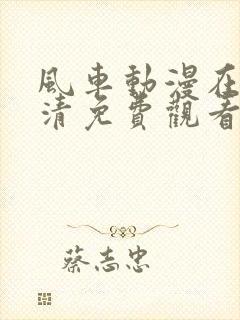 風車動漫在
清免費觀看
蔡志忠